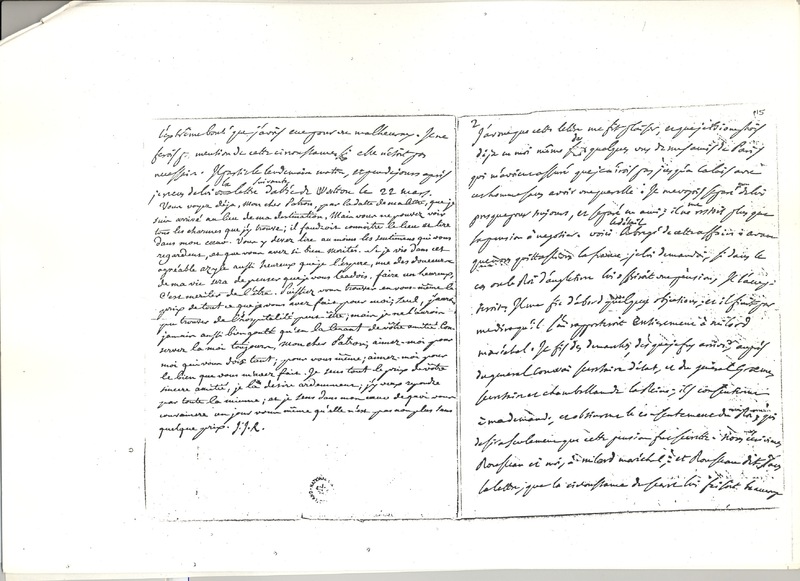 l'extrême bonté que j'avois eue pour ce malheureux. Je ne
ferois pas mention de cette circonstance si elle n'étoit pas
necessaire. Il partit le lendemain matin, et peu de jours après
je reçus de lui la lettre suivante datée de Wootton le 22 mars.
Vous voyez déja, Mon cher Patron, par la date de ma lettre, que je
suis arrivé au lieu de ma destination. Mais vous ne pouvez voir
tous les charmes que j'y trouve; il faudroit connoitre le lieu et lire
dans mon cœur. Vous y devez lire au moins les sentimens qui vous
regardent, et que vous avez si bien merités. Si je vis dans cet
agréable azyle aussi heureux que je l'espére, une des douceurs
de ma vie sera de penser que je vous les dois. faire un heureux,
c'est meriter de l'être. Puissiez vous trouver en vous-même le
prix de tout ce que vous avez fait pour moi; seul, j'aurois
pu trouver de l'hospitalité peut-être; mais je ne l'aurois
jamais aussi bien goutée qu'en la tenant de vôtre amitié. Con-
servez la moi toujours, Mon cher Patron; aimez-moi pour
moi qui vous dois tant, pour vous même; aimez-moi pour
le bien que vous m'avez fait. Je sens tout le prix de votre
sincere amitié, je la desire ardemment; j'y veux repondre
par toute la mienne; et je sens dans mon cœur de quoi vous
convaincre un jour vous même qu'elle n'est pas non plus sans
quelque prix. J.J.R.
115
2
J'avoue que cette lettre me fit plaisir, et que je
déja en moi même des quelques uns de mes amis de Paris
qui m'avoient assuré que je n'irois pas jusqu'à Calais avec
cet homme sans avoir une querelle. Je me voyois separé de lui
presque pour toujours, et separé en ami; il ne me restoit plus que
sa pension à negotier. voici le détail de cette affaire
je lui demandai, si dans le
cas ou le Roi d'angleterre lui offriroit une pension, Il l'accep-
teroit. Il me fit d'abord quelques objections, et il finit par
me dire qu'il s'en rapporteroit Entierement à milord
maréchal. Je fis des demarches auprès
du general Conway secretaire d'état, et du général Græme
secretaire et chambellan de la Reine; ils consentirent
à ma demande, et obtinrent le consentement du
desira seulement que cette pension fut secrete. Nous écrivimes
Rousseau et moi, à milord maréchal; et Rousseau dit dans
sa lettre, que la circonstance du secret lui faisoit beaucoup